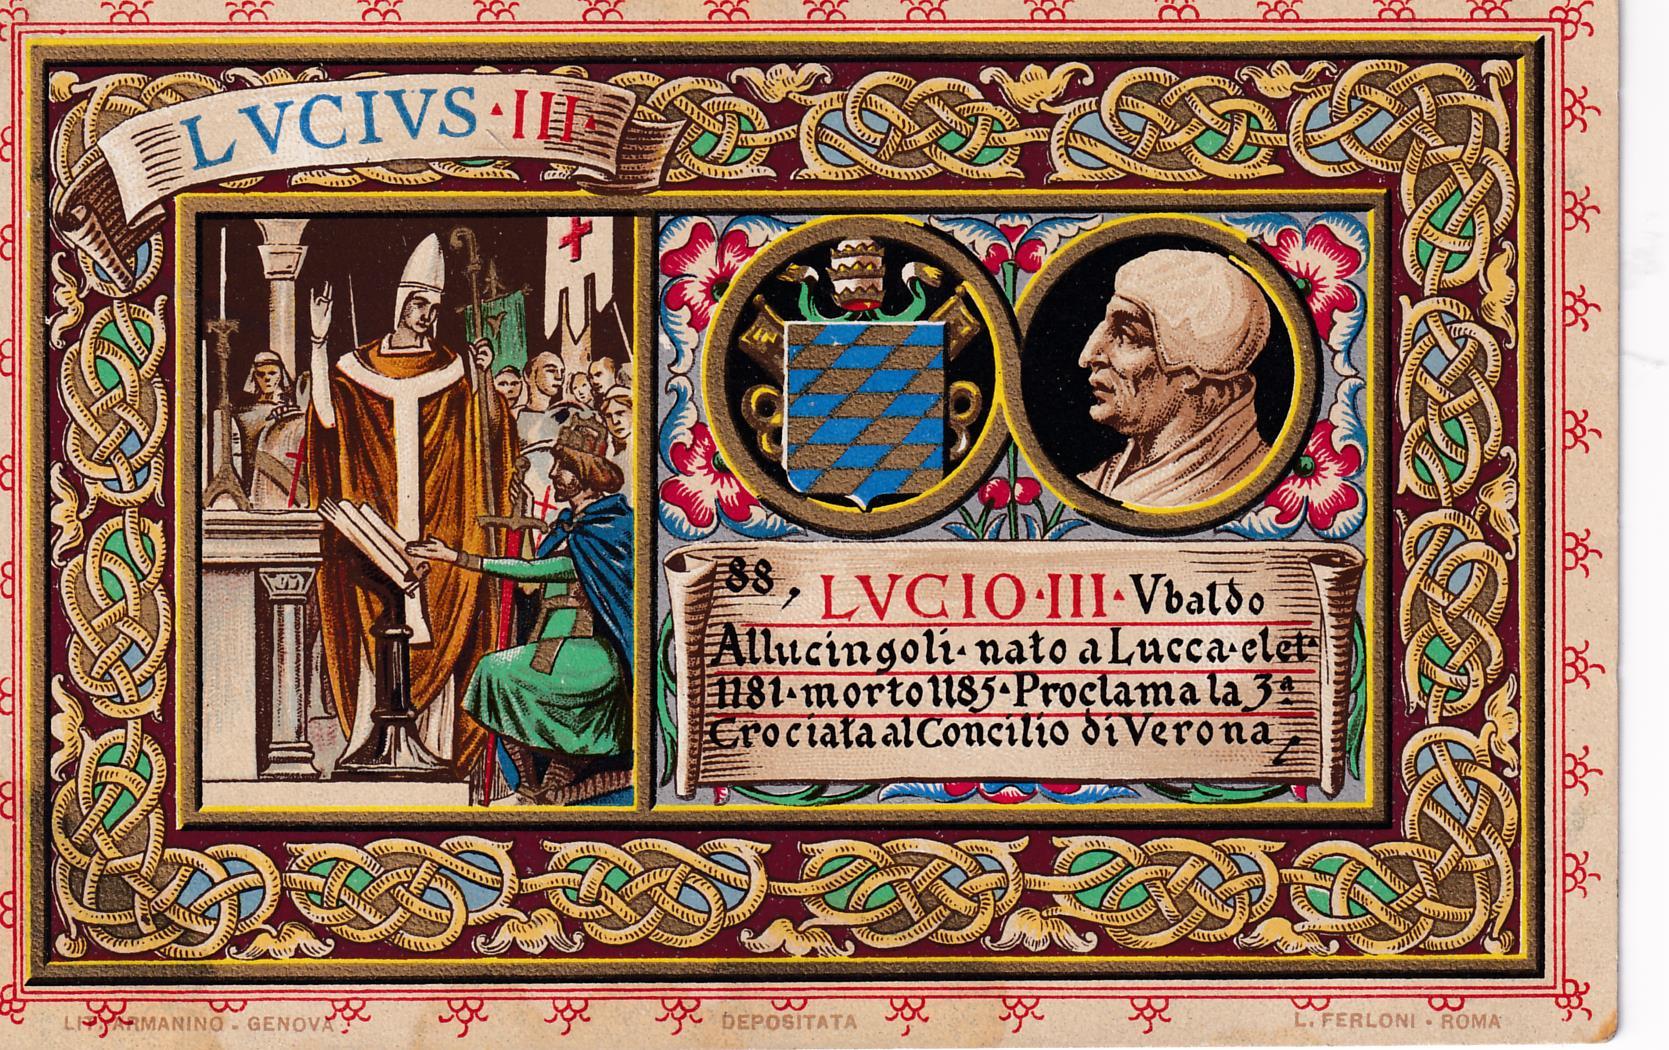 LVCIVS·III·
88, LVCIO·III·Vbaldo
Allucingoli·nato a Lucca·elet·
1181·morto 1185·Proclama la 3ª
Crociata al Concilio di Verona
LIT. ARMANINO - GENOVA
DEPOSITATA
L. FERLONI - ROMA